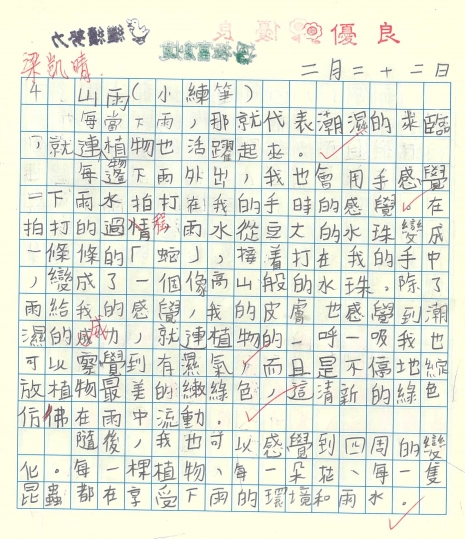 優良
繼續努力
梁凱晴
二月二十二日
4 山雨(小練筆)
每當下雨，那就代表潮濕的來臨
，就連植物也活躍起來。
每逢下雨外出，我也會用手感覺
一下雨水拍打在我的手時的感覺。在
拍打的過情程雨水從豆大的水珠變成
一條條的「蛇」，接着打在我的手中
，變成了一個像高山般的水珠。除了
雨給我的感覺，我的皮膚也感覺到潮
濕的威力，就連植物的一呼一吸我也
可以察覺到有濕氣，而且是不停地綻
放植物最美的嫩綠色，這清新的綠色
仿佛在雨中流動。
隨後，我也可以感覺到四周的變
化。每一棵植物、每一朵花、每一隻
昆蟲都在享受下雨的環境和雨水。